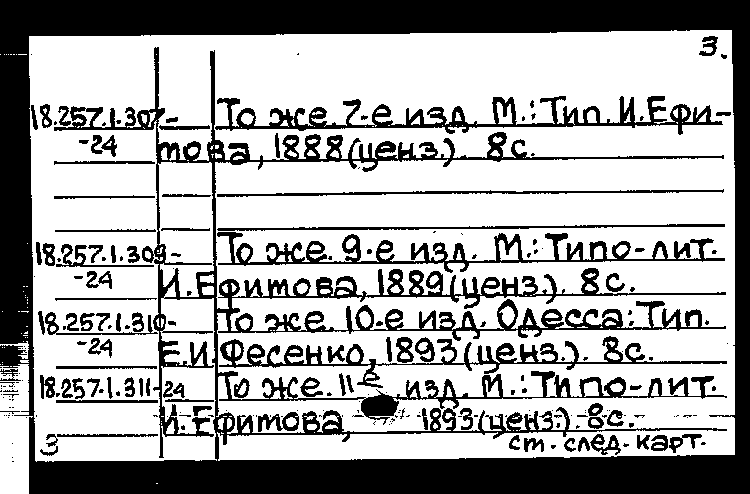 3.
18.257.1.307- То же. 7-е изд. М.: Тип. И. Ефи-
-24 това, 1888 (ценз.). 8 с.
18.257.1.309- То же. 9-е изд. М.: Типо-лит.
-24 И. Ефитова, 1889 (ценз.). 8 с.
18.257.1.310- То же. 10-е изд. Одесса: Тип.
-24 Е.И. Фесенко, 1893 (ценз.). 8 с.
18.257.1.311-24 То же. 11-е изд. М.: Типо-лит.
И. Ефитова, 1893 (ценз.). 8 с.
3 ст. след. карт.